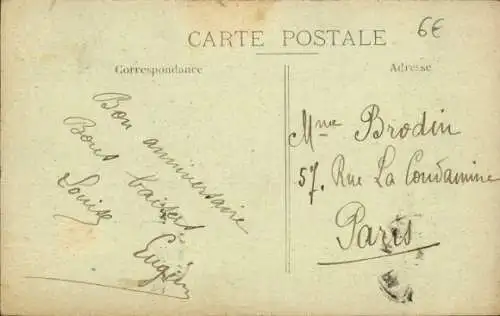 6€
CARTE POSTALE
Correspondance
Adresse
Bon anniversaire
Bons baisers
Louise
Eugène
Mme Brodin
57, Rue La Condamine
Paris